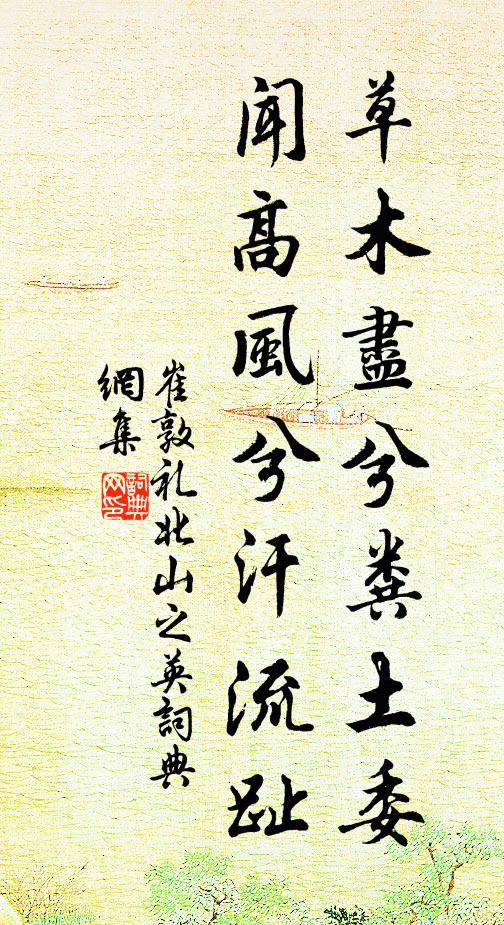 草木盡兮糞土委
聞高風兮汗流趾
崔敦礼北山之英詞典
網集
詞典
网印